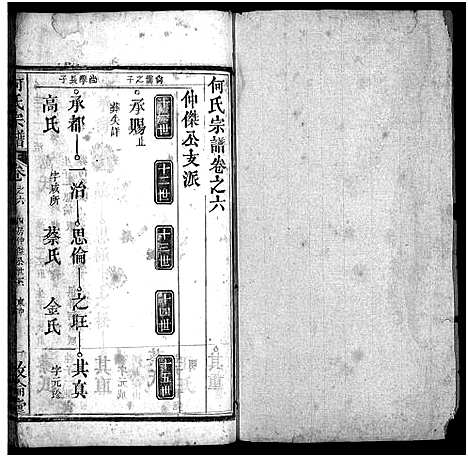 何氏宗譜卷之六
仲傑公支派
十一世 十二世 十三世 十四世 十五世
承賜止
葬失詳
承都 一治 思倫 之旺 其真
字成所 字元珍
高氏 蔡氏 金氏
何氏宗譜 卷之六